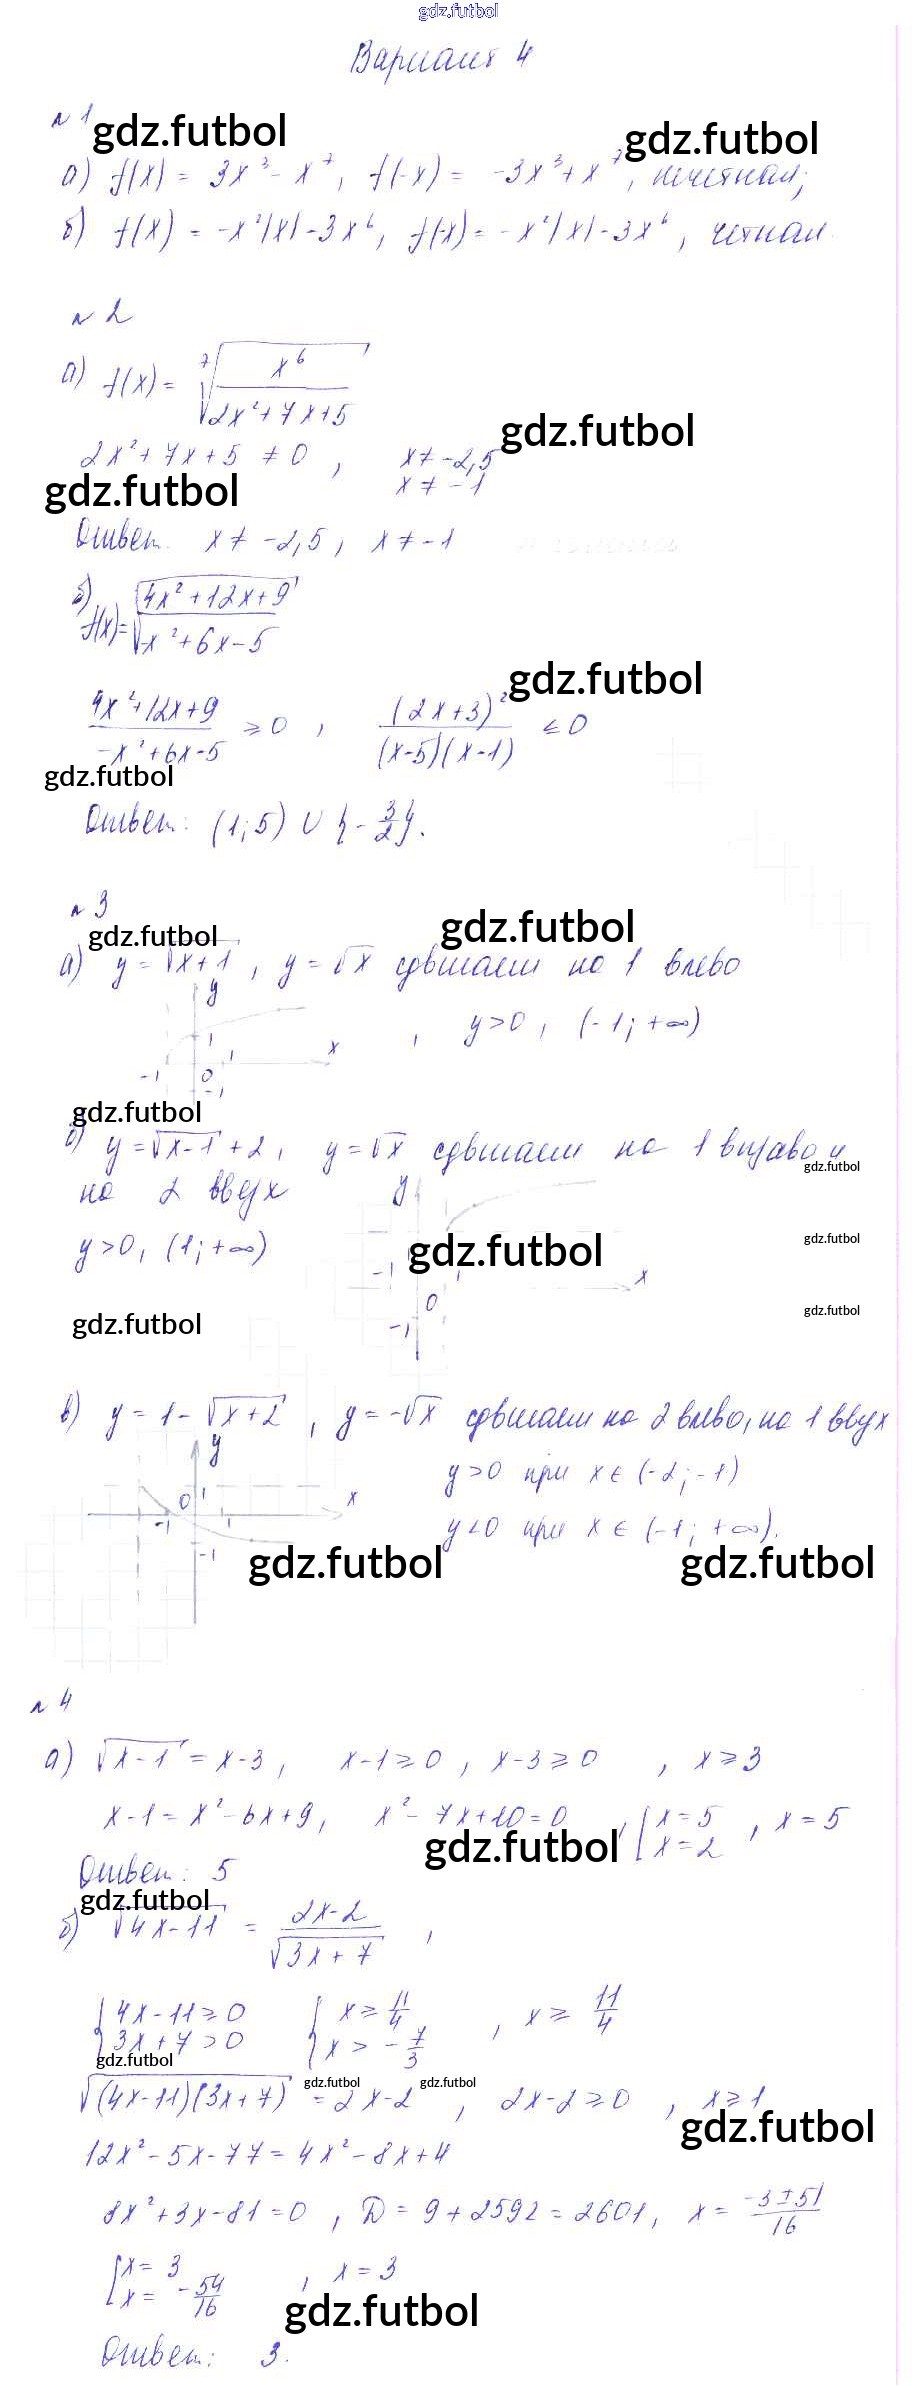 gdz.futbol
Вариант 4
№ 1
gdz.futbol
gdz.futbol
а) f(x) = 3x³ - x⁷, f(-x) = -3x³ + x⁷, нечетная;
б) f(x) = -x²|x| - 3x⁶, f(-x) = -x²|x| - 3x⁶, четная.
№ 2
а) f(x) = ⁷√(x⁶/(2x² + 7x + 5))
gdz.futbol
2x² + 7x + 5 ≠ 0, x ≠ -2,5
x ≠ -1
gdz.futbol
Ответ. x ≠ -2,5, x ≠ -1
б)
f(x) = √((4x² + 12x + 9)/(-x² + 6x - 5))
gdz.futbol
(4x² + 12x + 9)/(-x² + 6x - 5) ≥ 0, (2x + 3)²/((x-5)(x-1)) ≤ 0
gdz.futbol
Ответ: (1; 5) ∪ {-3/2}.
№ 3
gdz.futbol
gdz.futbol
а) y = √(x+1), y = √x сдвигаем на 1 влево
y
y > 0, (-1; +∞)
1
x
-1 0 1
-1
gdz.futbol
б) y = √(x-1) + 2, y = √x сдвигаем на 1 вправо и
gdz.futbol
на 2 вверх
y
y > 0, (1; +∞)
gdz.futbol
gdz.futbol
-1 1 x
0
gdz.futbol
gdz.futbol
-1
в) y = 1 - √(x+2), y = -√x сдвигаем на 2 влево, на 1 вверх
y
y > 0 при x ∈ (-2; -1)
0 1 x
-1 1
y < 0 при x ∈ (-1; +∞).
-1
gdz.futbol
gdz.futbol
№ 4
а) √(x-1) = x-3, x-1 ≥ 0, x-3 ≥ 0, x ≥ 3
x-1 = x² - 6x + 9, x² - 7x + 10 = 0, [x = 5, x = 5
x = 2
gdz.futbol
Ответ: 5
gdz.futbol
б) √(4x-11) = (2x-2)/√(3x+7),
{4x-11 ≥ 0 {x ≥ 11/4, x ≥ 11/4
3x+7 > 0 x > -7/3
gdz.futbol
gdz.futbol
gdz.futbol
√((4x-11)(3x+7)) = 2x-2, 2x-2 ≥ 0, x ≥ 1
gdz.futbol
12x² - 5x - 77 = 4x² - 8x + 4
8x² + 3x - 81 = 0, D = 9 + 2592 = 2601, x = (-3 ± 51)/16
[x = 3, x = 3
x = -54/16
gdz.futbol
Ответ: 3.